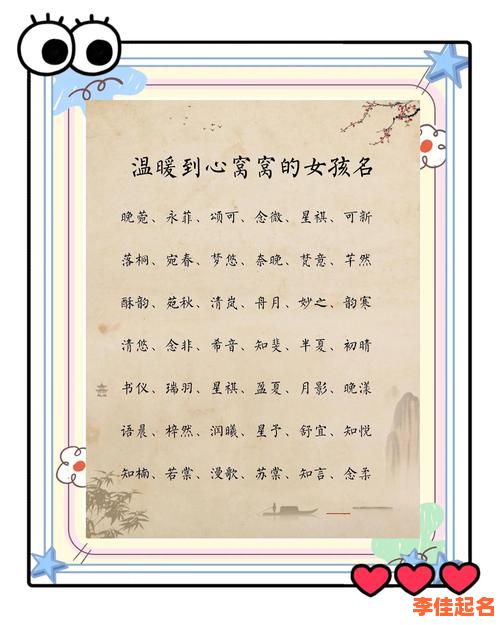 温暖到心窝窝的女孩名
晚菀、永菲、颂可、念微、星祺、可新
落桐、宛春、梦悠、奈晚、梵意、芊然
酥韵、苑秋、清岚、舟月、妙之、韵寒
清悠、念非、希音、知斐、半夏、初晴
书仪、瑞羽、星祺、盈夏、月影、晚漾
语晨、梓然、润曦、星予、舒宜、知悦
知楠、若棠、漫歌、苏棠、知言、念柔
李佳起名